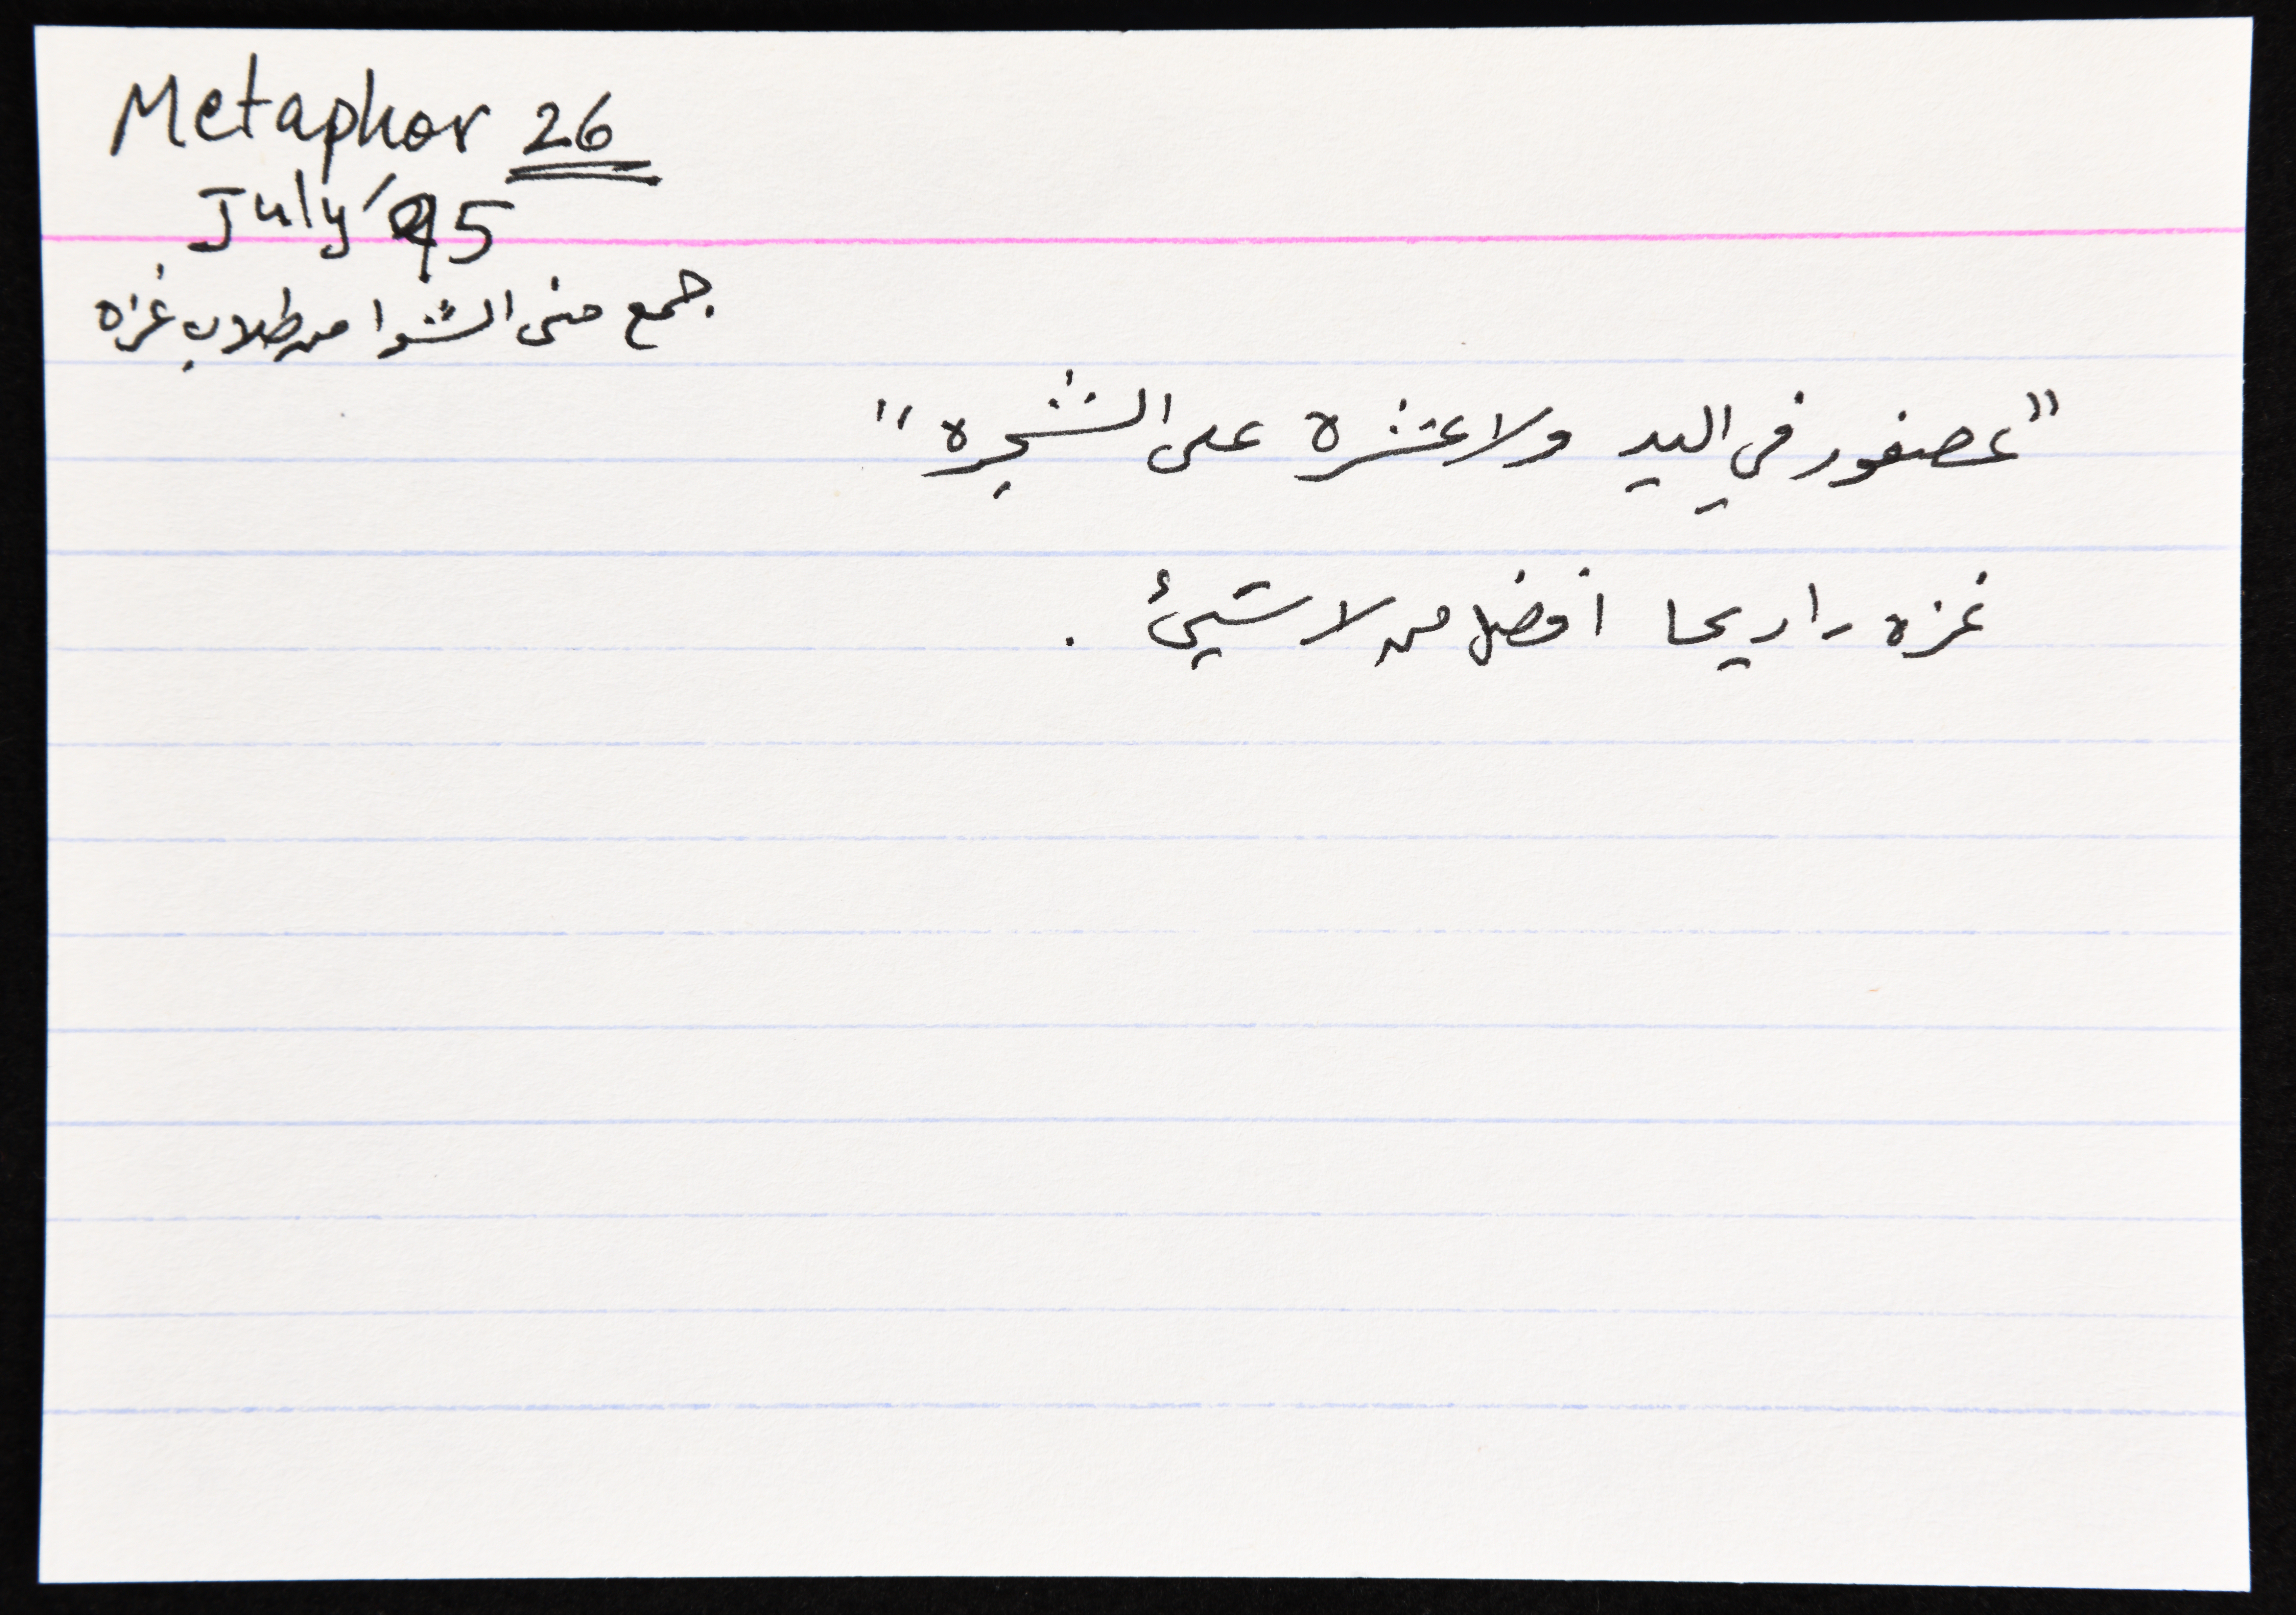 Metaphor 26
July '95
جمع منى الشوا من طلاب غزه
"عصفور في اليد ولا عشره على الشجره"
غزه - اريحا افضل من لا شيئ .